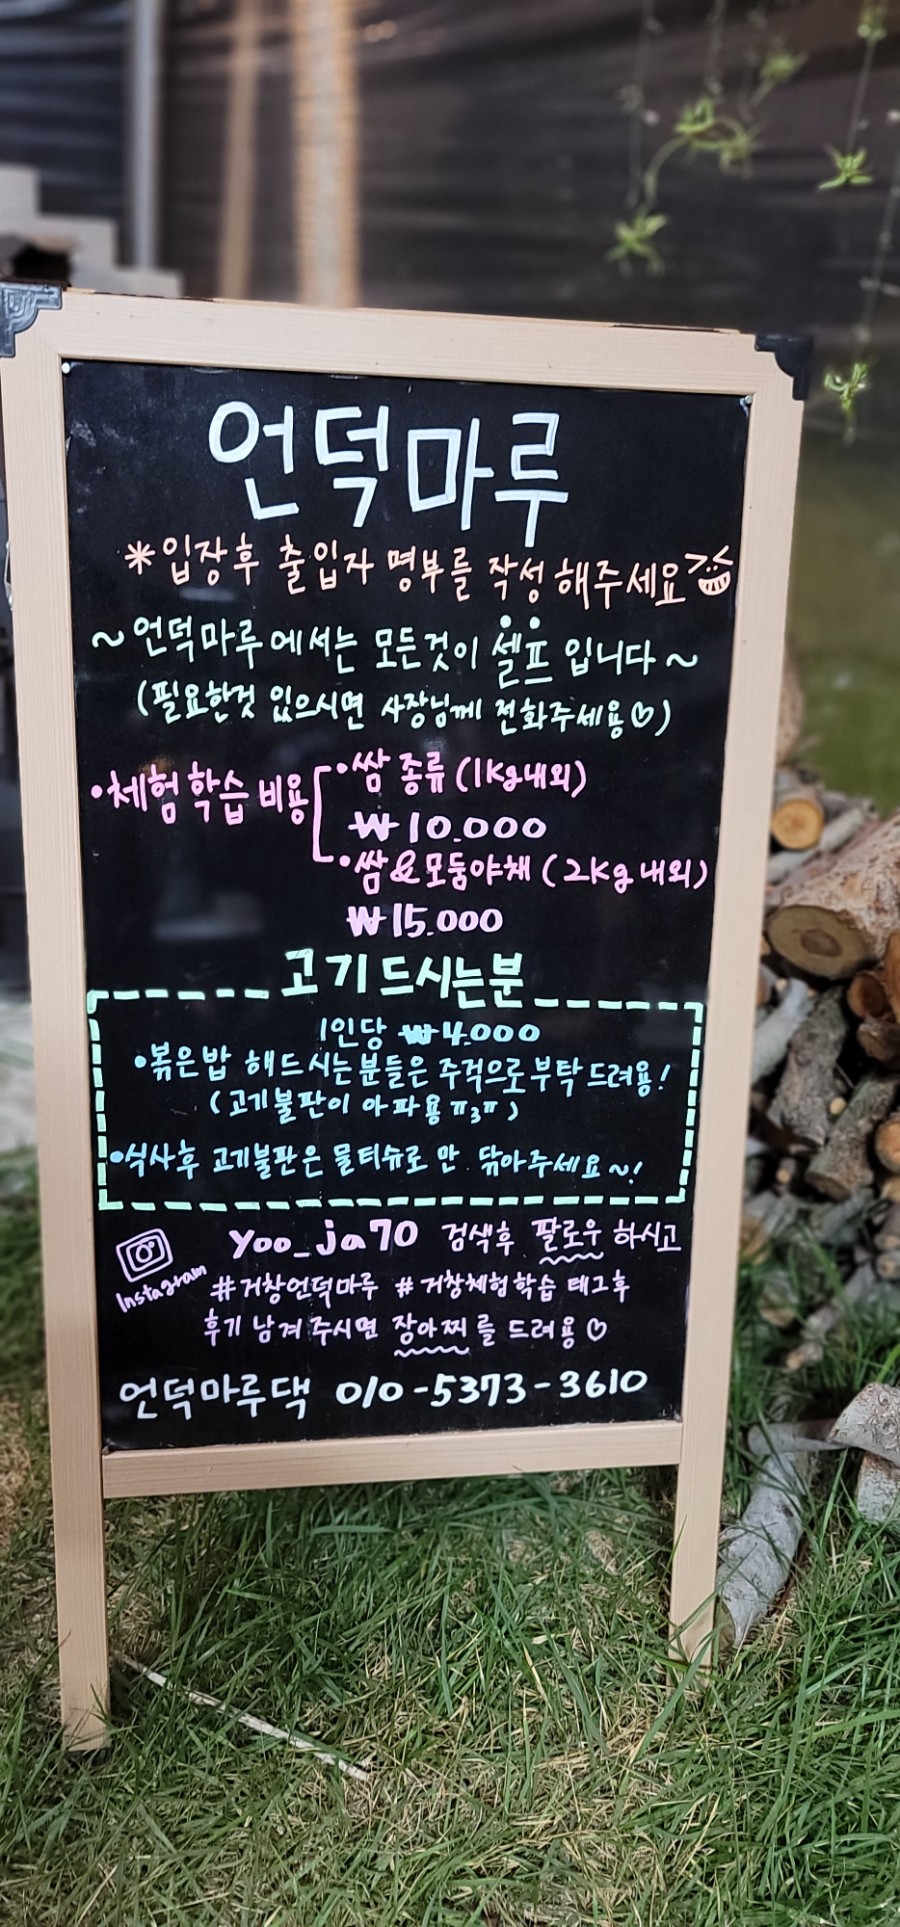 언덕마루
*입장후 출입자 명부를 작성해주세요
~언덕마루에서는 모든것이 셀프입니다~
(필요한것 있으시면 사장님께 전화주세용♡)
•체험학습 비용 •쌈 종류 (1kg내외)
₩10.000
•쌈&모둠야채 (2kg내외)
₩15.000
고기드시는분
1인당 ₩4.000
•볶은밥 해드시는분들은 주걱으로부탁드려용!
(고기불판이 아파용ㅠ3ㅠ)
•식사후 고기불판은 물티슈로 만 닦아주세요~!
Instagram yoo_ja70 검색후 팔로우 하시고
#거창언덕마루 #거창체험학습 태그후
후기 남겨주시면 장아찌를 드려용♡
언덕마루댁 010-5373-3610